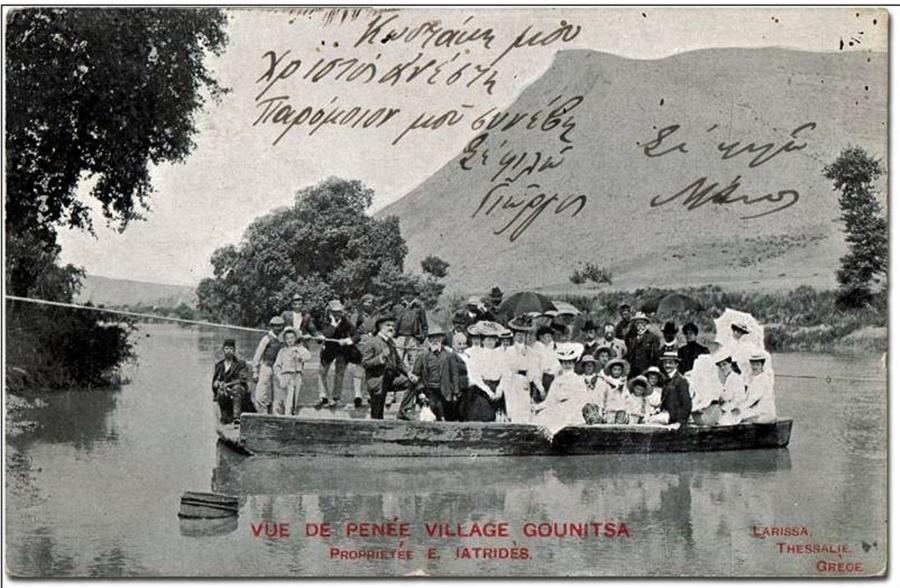 Κωστάκη μοῦ
Χριστὸς ἀνέστη
Παρόμοιον μοῦ συνέβη
Σὲ φιλῶ
Γιῶργος
Σὲ φιλῶ
VUE DE PENÉE VILLAGE GOUNITSA
PROPRIETÉE E. IATRIDÈS.
LARISSA,
THESSALIE,
GRÈCE